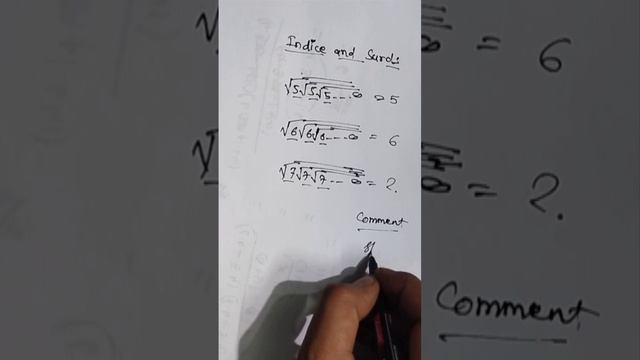 Indice and Surds
√5√5√5--- ∞ = 5
√6√6√6--- ∞ = 6
√7√7√7--- ∞ = ?.
Comment